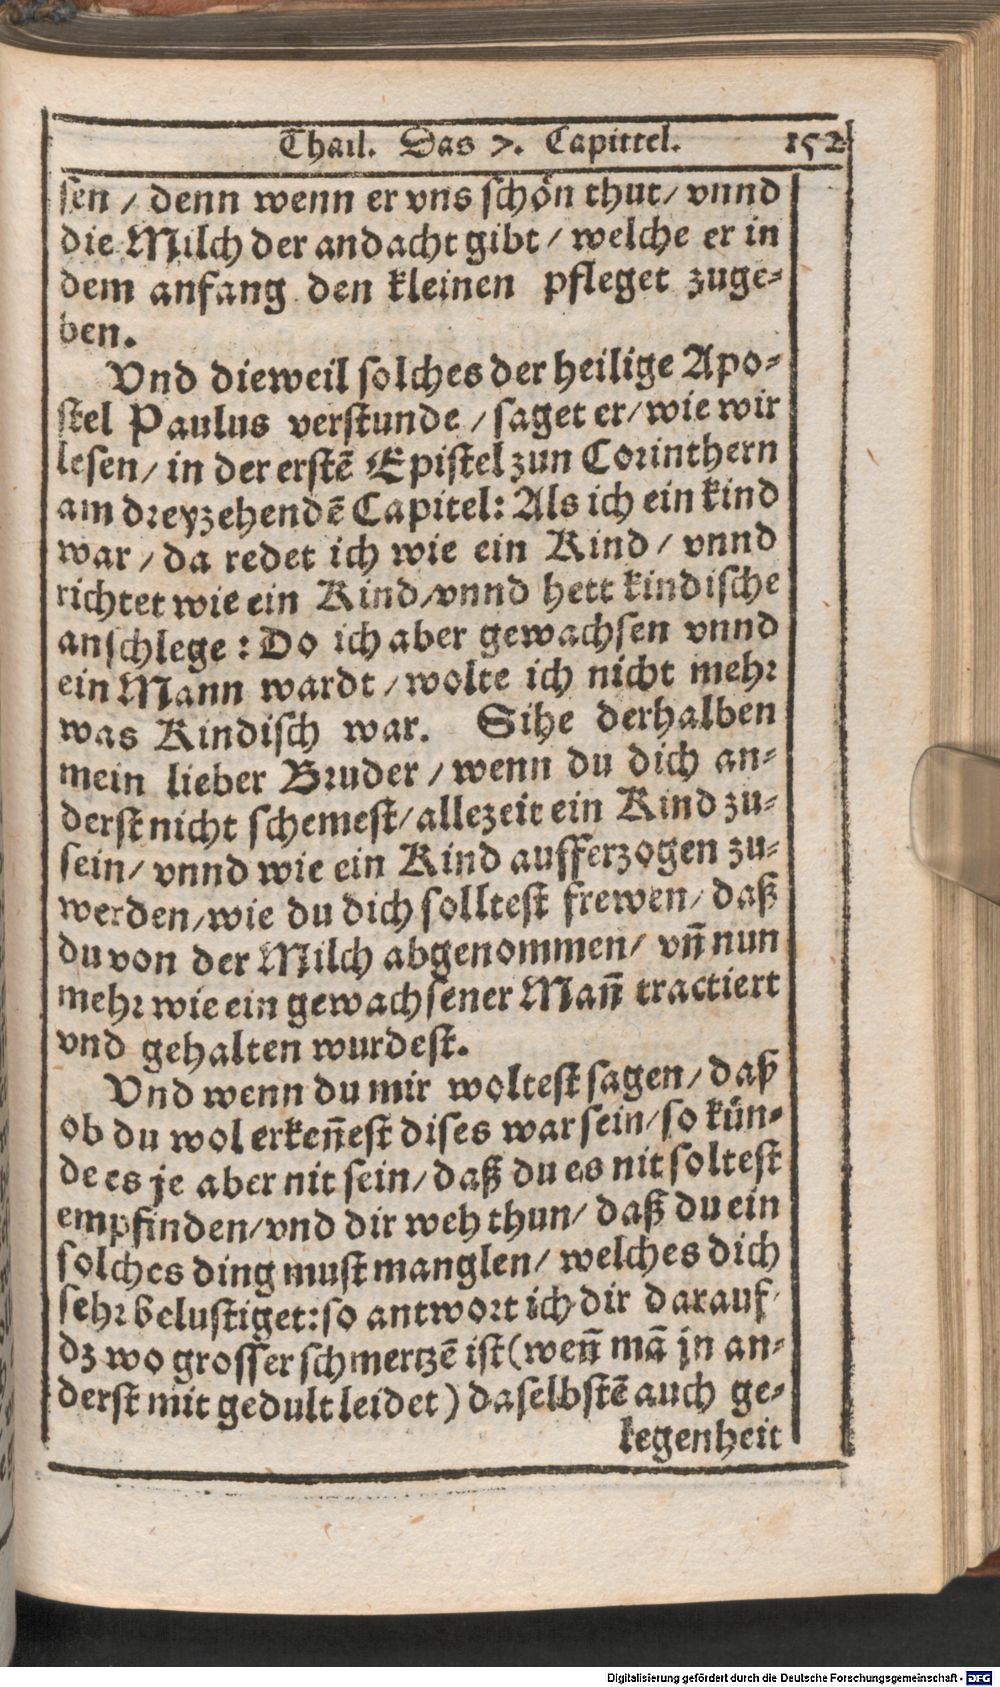 Thail. Das 7. Capittel. 152
sen / denn wenn er vns schön thut / vnnd
die Milch der andacht gibt / welche er in
dem anfang den kleinen pfleget zuge-
ben.
Vnd dieweil solches der heilige Apo-
stel Paulus verstunde / saget er / wie wir
lesen / in der erstē Epistel zun Corinthern
am dreyzehendē Capitel: Als ich ein kind
war / da redet ich wie ein Kind / vnnd
richtet wie ein Kind / vnnd hett kindische
anschlege: Do ich aber gewachsen vnnd
ein Mann wardt / wolte ich nicht mehr
was Kindisch war. Sihe derhalben
mein lieber Bruder / wenn du dich an-
derst nicht schemest / allezeit ein Kind zu-
sein / vnnd wie ein Kind aufferzogen zu-
werden / wie du dich solltest frewen / daß
du von der Milch abgenommen / vn̄ nun
mehr wie ein gewachsener Man̄ tractiert
vnd gehalten wurdest.
Vnd wenn du mir woltest sagen / daß
ob du wol erken̄est dises war sein / so kün-
de es je aber nit sein / daß du es nit soltest
empfinden / vnd dir weh thun / daß du ein
solches ding must manglen / welches dich
sehr belustiget: so antwort ich dir darauf
dz wo grosser schmertzē ist (wen̄ mā jn an-
derst mit gedult leidet) daselbstē auch ge-
legenheit
Digitalisierung gefördert durch die Deutsche Forschungsgemeinschaft - DFG